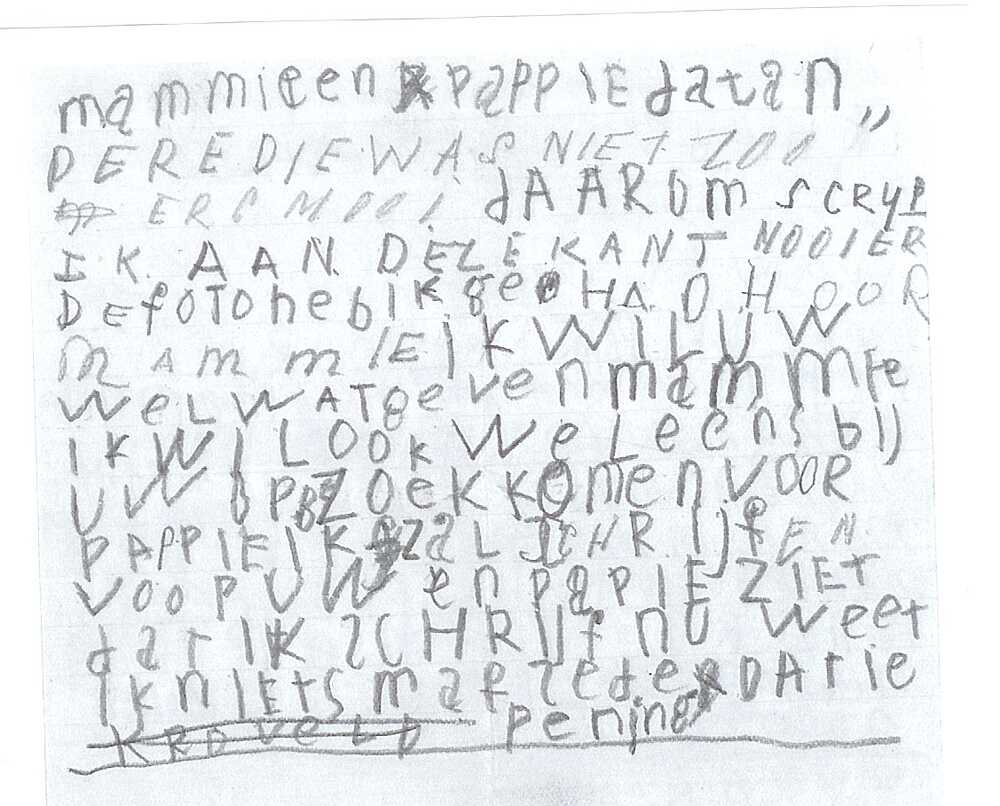 mammieen PapPIE datan,,
DEREDIEWAS NIET ZOO
ERG MOOI dAAROm SCRYP
IK AAN DEZEKANT MOOIER
DEfOTOhebIK geHAD HOOR
MAmmIE IK WIL U W
WeL WATgevenmammMIe
IK WIL OOK WeLeens bIJ
UW OPBEZOeKKOmenVOOR
PAPPIEIK ZaL SCHRIJfEN
VOOP UW en papIE ZIET
dat IK SCHRIJf nU Weet
IK nIETS
KROVELD pening